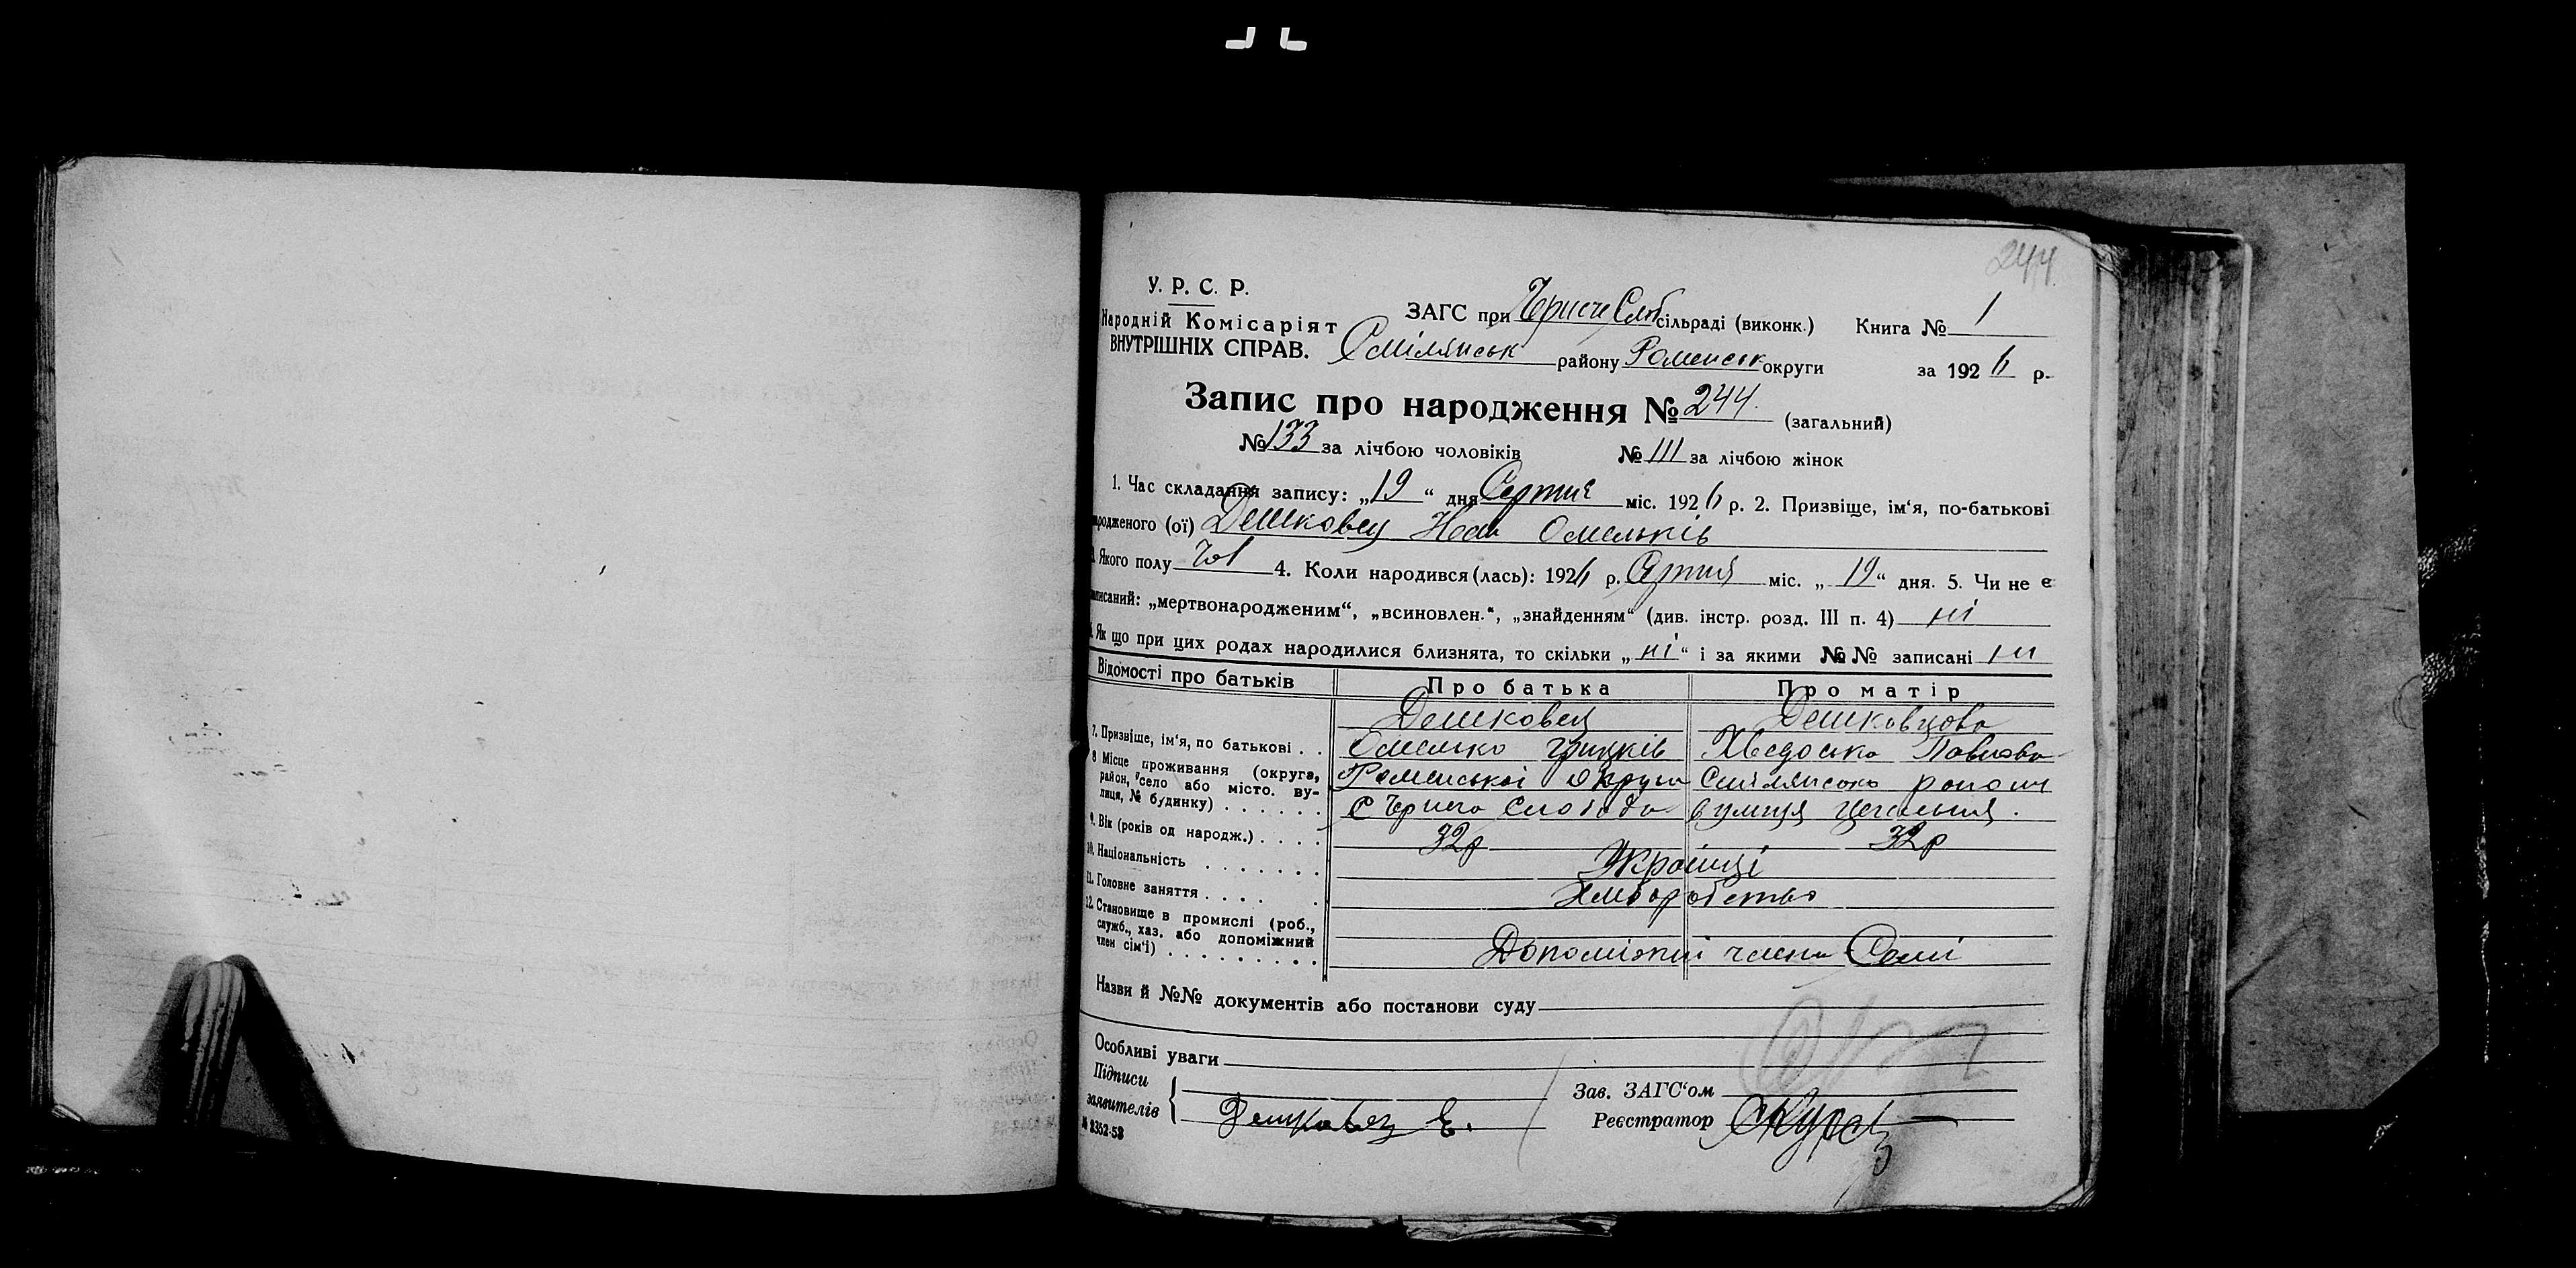 244
У. Р. С. Р.
Народній Комісаріят
ВНУТРІШНІХ СПРАВ.
ЗАГС при сільраді (виконк.) Книга № 1
Смілянськ району Роменськ округи за 1926 р.
Запис про народження № 244. (загальний)
№ 133 за лічбою чоловіків № 111 за лічбою жінок
1. Час складання запису: „19“ дня Серпня міс. 1926 р. 2. Призвіще, ім‘я, по-батькові
народженого (ої) Дешковец Іван Омельків
Якого полу чол 4. Коли народився (лась): 1926 р. Серпня міс. „19“ дня. 5. Чи не є
записаний: „мертвонародженим“, „всиновлен.“, „знайденням“ (див. інстр. розд. III п. 4) ні
Як що при цих родах народилися близнята, то скільки „ні“ і за якими №№ записані ні
Відомості про батьків Про батька Про матір
Дешковец Дешковцова
7. Призвіще, ім‘я, по батькові . . Омелько Грицків Хведоська Павлова
8 Місце проживання (округа, район, село або місто. вулиця, № будинку) . . . . . Роменської Округи Смілянсько
с Чернеча Слобода вулиця
9. Вік (років од народж.) . . . . 32р 32р
10. Національність . . . . . . . Українці
11. Головне заняття . . . . . Хліборобство
12. Становище в промислі (роб., служб., хаз. або допоміжний член сім‘ї) . . . . . . . . . Допоміжні члени Семї
Назви й №№ документів або постанови суду
Особливі уваги
Підписи
заявителів Дешковец Е.
Зав. ЗАГС‘ом
Реєстратор
№ 2352-53